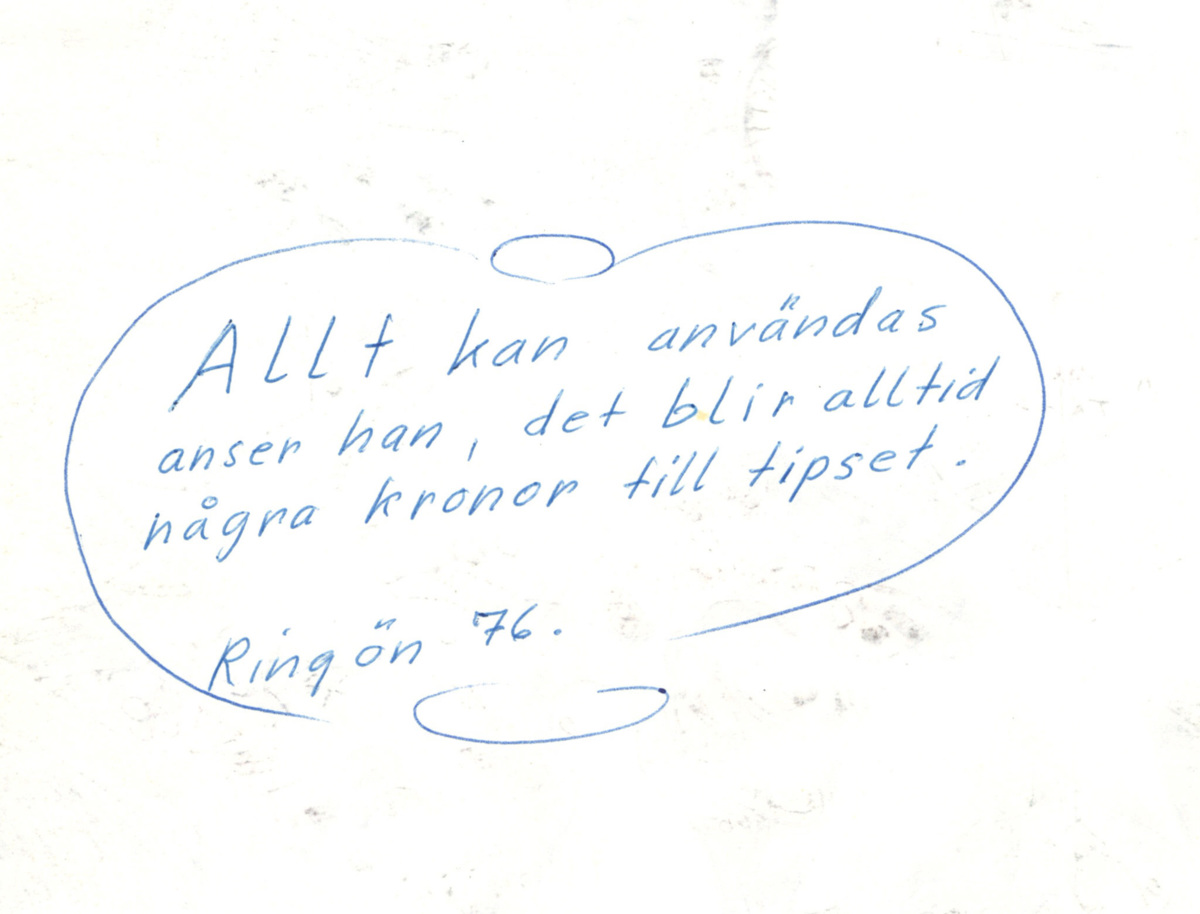 Allt kan användas
anser han, det blir alltid
några kronor till tipset.
Ringön 76.